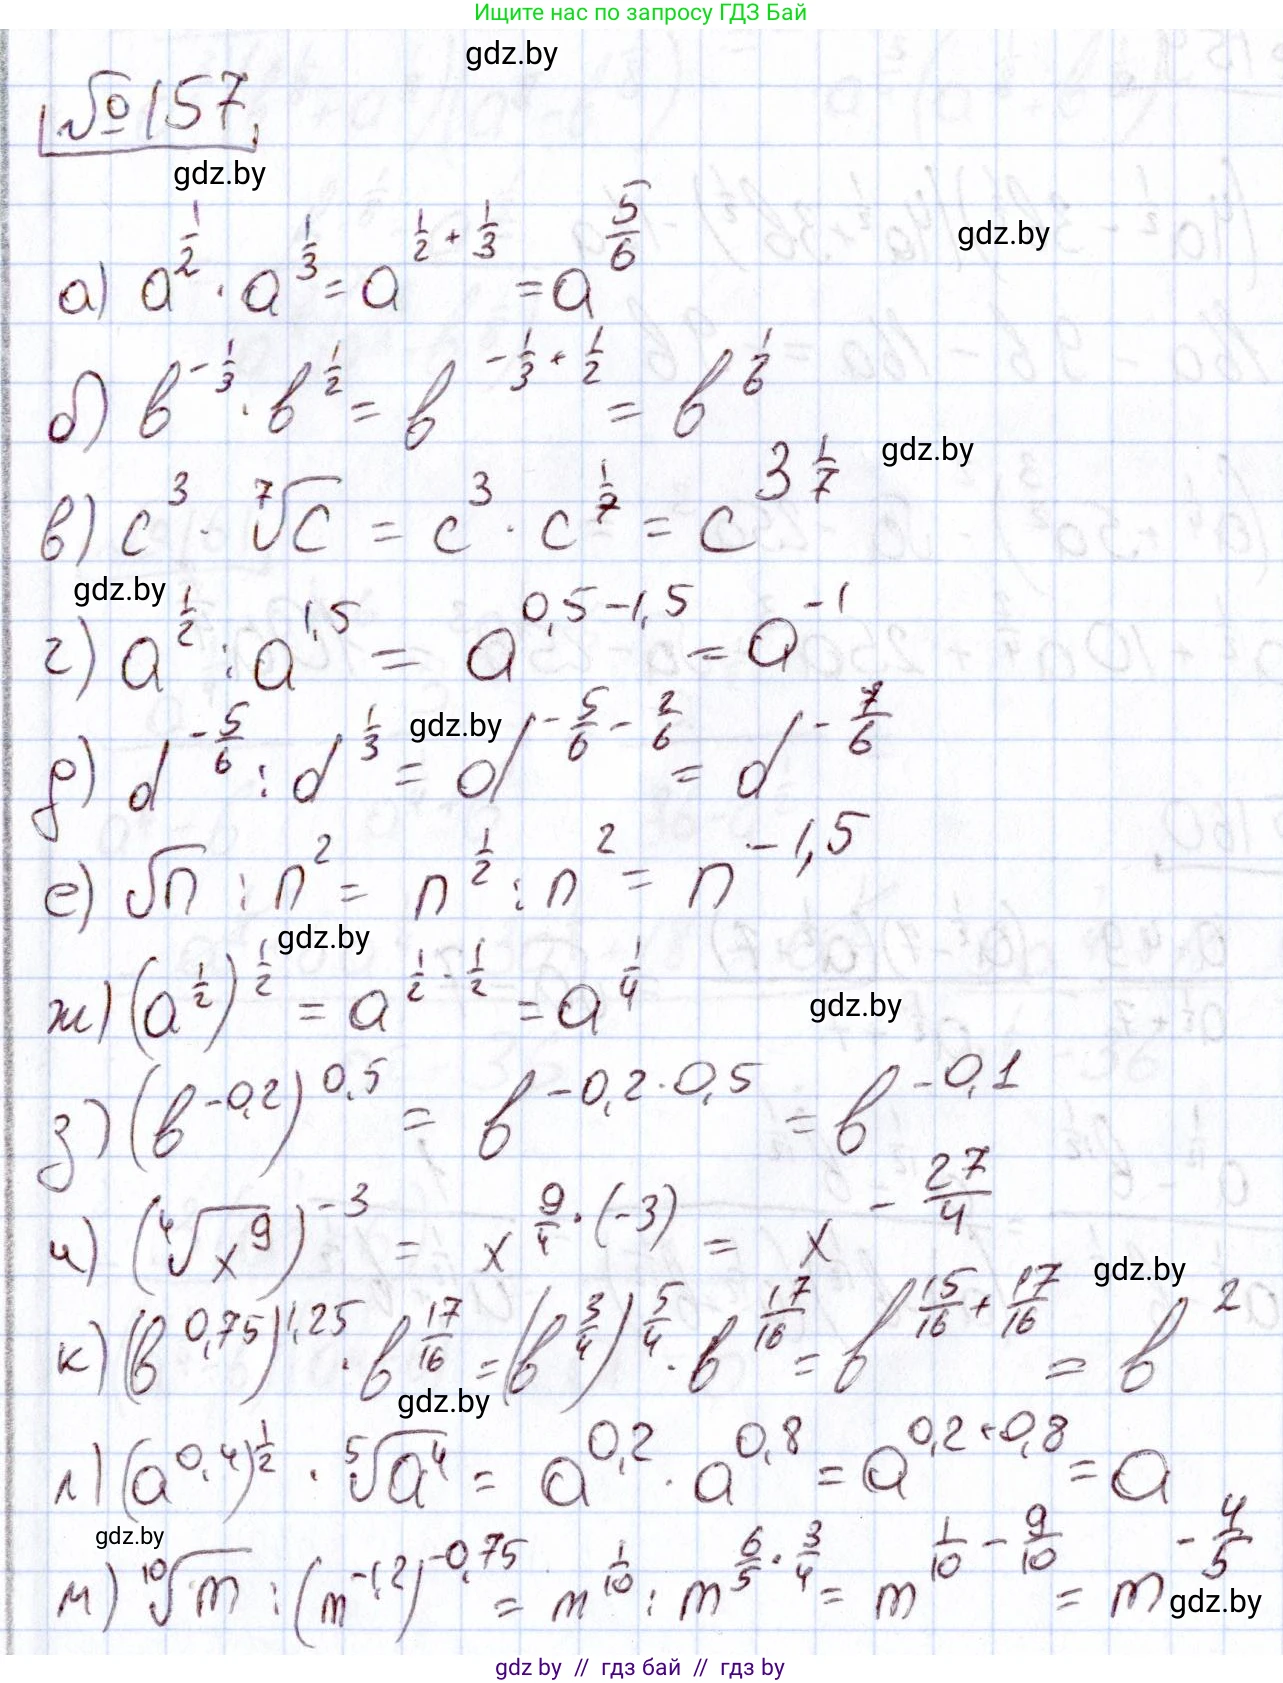 Ищите нас по запросу ГДЗ Бай
gdz.by
№157.
gdz.by
а) a^{1/2} · a^{1/3} = a^{1/2 + 1/3} = a^{5/6}
gdz.by
б) b^{-1/3} · b^{1/2} = b^{-1/3 + 1/2} = b^{1/6}
gdz.by
в) c^3 · ⁷√c = c^3 · c^{1/7} = c^{3 1/7}
gdz.by
г) a^{1/2} : a^{1,5} = a^{0,5-1,5} = a^{-1}
gdz.by
д) d^{-5/6} : d^{1/3} = d^{-5/6 - 2/6} = d^{-7/6}
е) √n : n^2 = n^{1/2} : n^2 = n^{-1,5}
gdz.by
ж) (a^{1/2})^{1/2} = a^{1/2 · 1/2} = a^{1/4}
gdz.by
з) (b^{-0,2})^{0,5} = b^{-0,2·0,5} = b^{-0,1}
и) (⁴√x^9)^{-3} = x^{9/4 · (-3)} = x^{-27/4}
gdz.by
к) (b^{0,75})^{1,25} · b^{17/16} = (b^{3/4})^{5/4} · b^{17/16} = b^{15/16 + 17/16} = b^2
gdz.by
л) (a^{0,4})^{1/2} · ⁵√a^4 = a^{0,2} · a^{0,8} = a^{0,2+0,8} = a
gdz.by
м) ¹⁰√m : (m^{-1,2})^{-0,75} = m^{1/10} : m^{6/5 · 3/4} = m^{1/10 - 9/10} = m^{-4/5}
gdz.by
gdz.by // гдз бай // гдз by